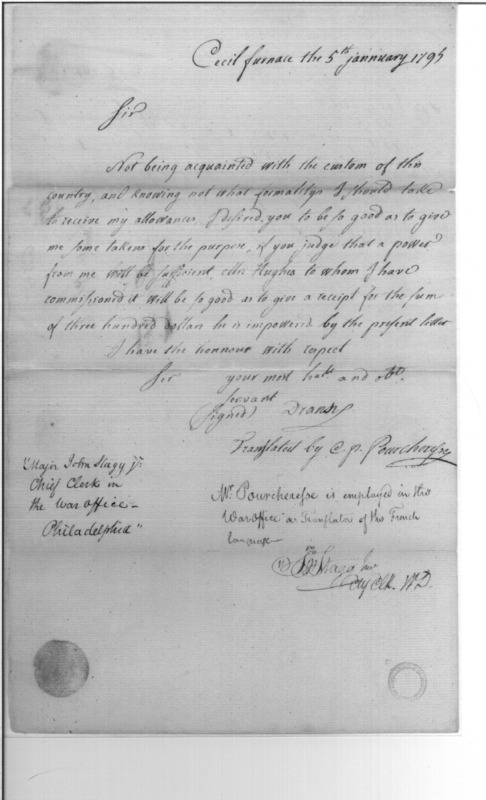 Cecil furnace the 5th jannuary 1795
Sir
Not being acquainted with the custom of this
country, and knowing not what formalitys I should take
to receive my allowances. I desired you to be so good as to give
me some takens for the purpose, if you judge that a power
from me will be sufficient, Mr Hughes to whom I have
commissioned it will be so good as to give a receipt for the sum
of three hundred dollars he is impowered by the present letter
I have the honnour with respect
Sir your most and
servant
(signed)
Translated by C. p. Pourcheresse
"Major John Stagg Jr.
Chief Clerk in
the War office -
Philadelphia"
Mr. Pourcheresse is employed in the
War Office as Translator of the French
Language
Jno Stagg Junr
Clk. W.D.